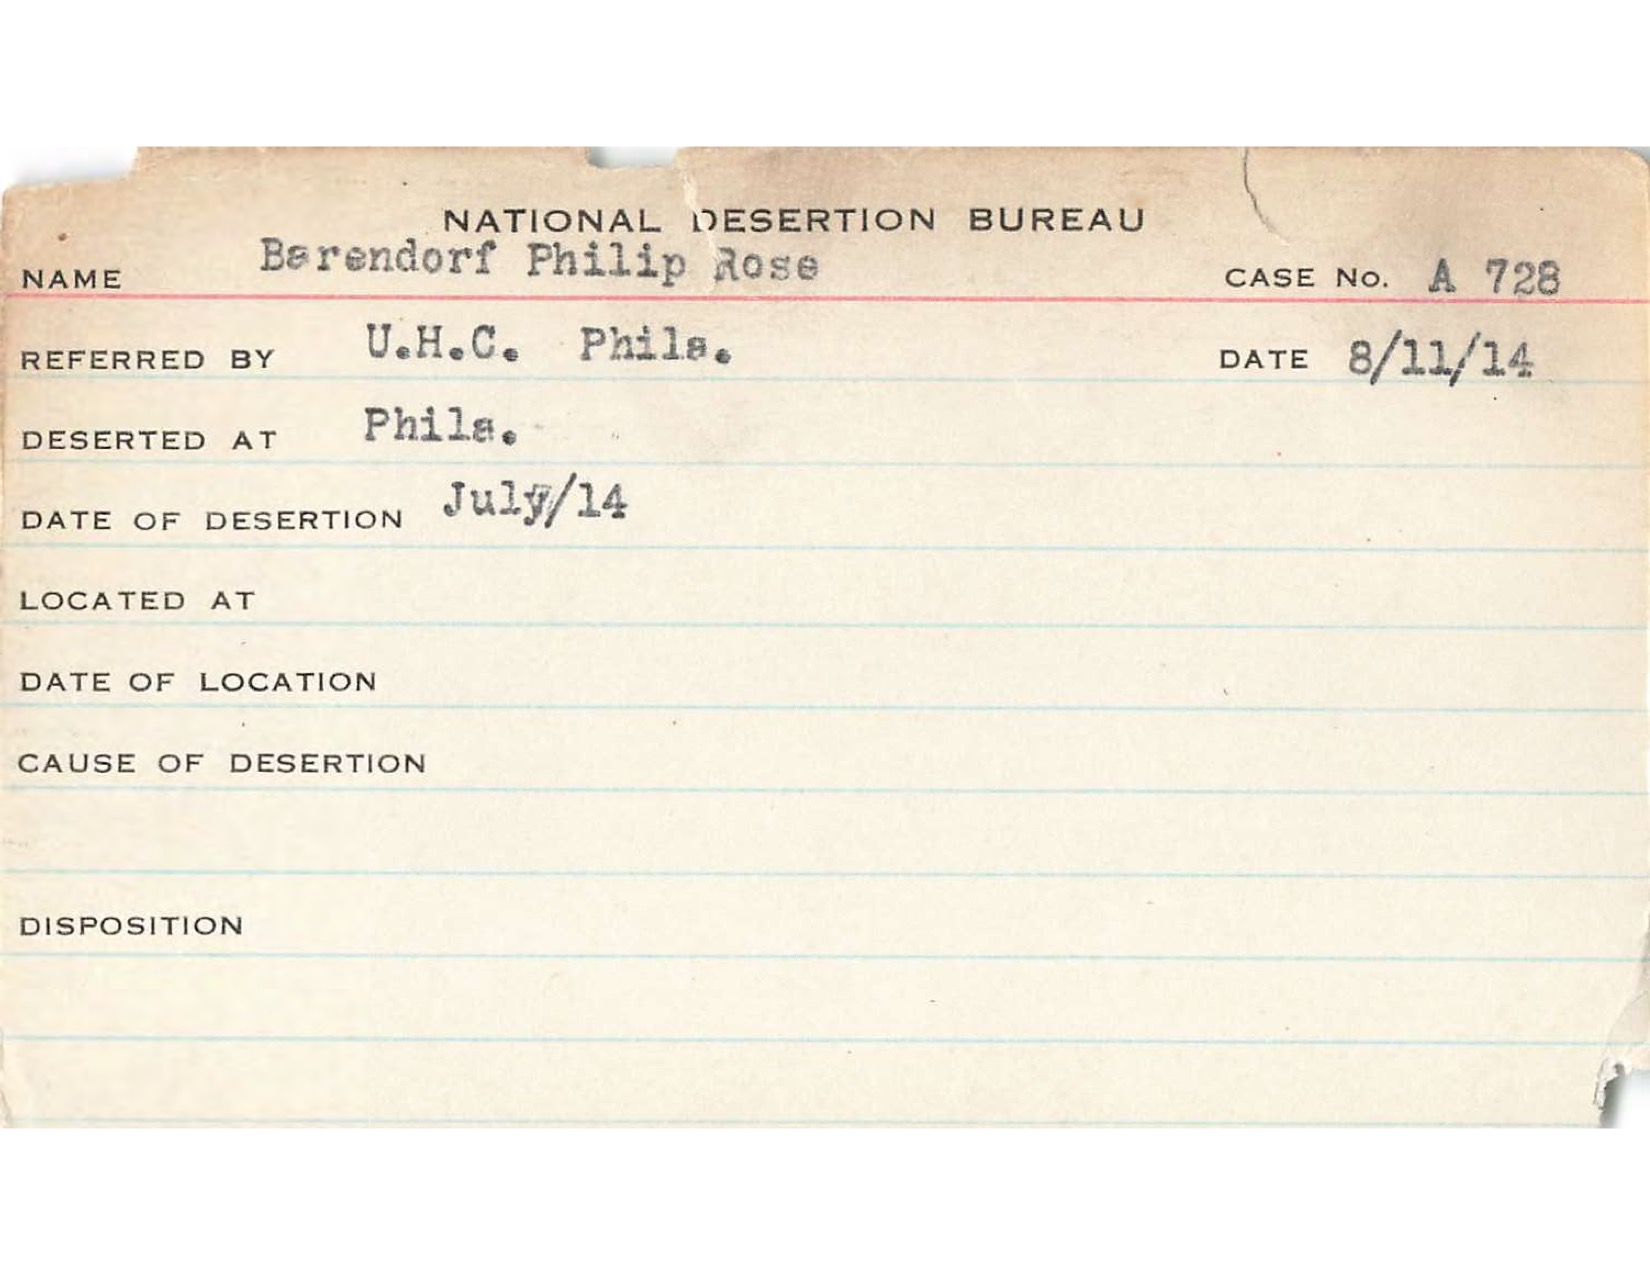 NATIONAL DESERTION BUREAU
NAME Barendorf Philip Rose CASE No. A 728
REFERRED BY U.H.C. Phila. DATE 8/11/14
DESERTED AT Phila.
DATE OF DESERTION July/14
LOCATED AT
DATE OF LOCATION
CAUSE OF DESERTION
DISPOSITION